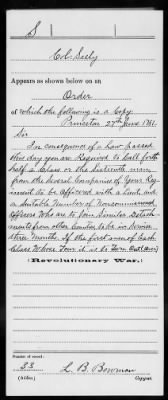 S
Col. Seely
Appears as shown below on an
Order
of which the following is a Copy.
Princeton 27th June 1781.
Sir
In consequence of a law passed
this day you are Required to Call forth
half a Class or the Sixteenth man
from the Several Companies of Your Regi
ment to be officered with a Lieut and
a Suitable Number of Noncommissioned
officers Who are to Join Similar Detach
ments from other Counties
three Months. If the first men of Each
Class Whose Tour it is to Turn out and
Revolutionary War:
Number of record:
33
L. B. Bowman
(Abbr.)
Copyist.